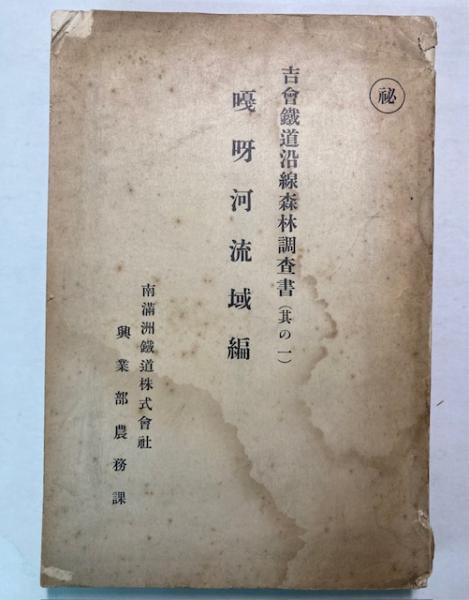 ㊙
吉會鐵道沿線森林調查書（其の一）
嘎呀河流域編
南滿洲鐵道株式會社
興業部農務課